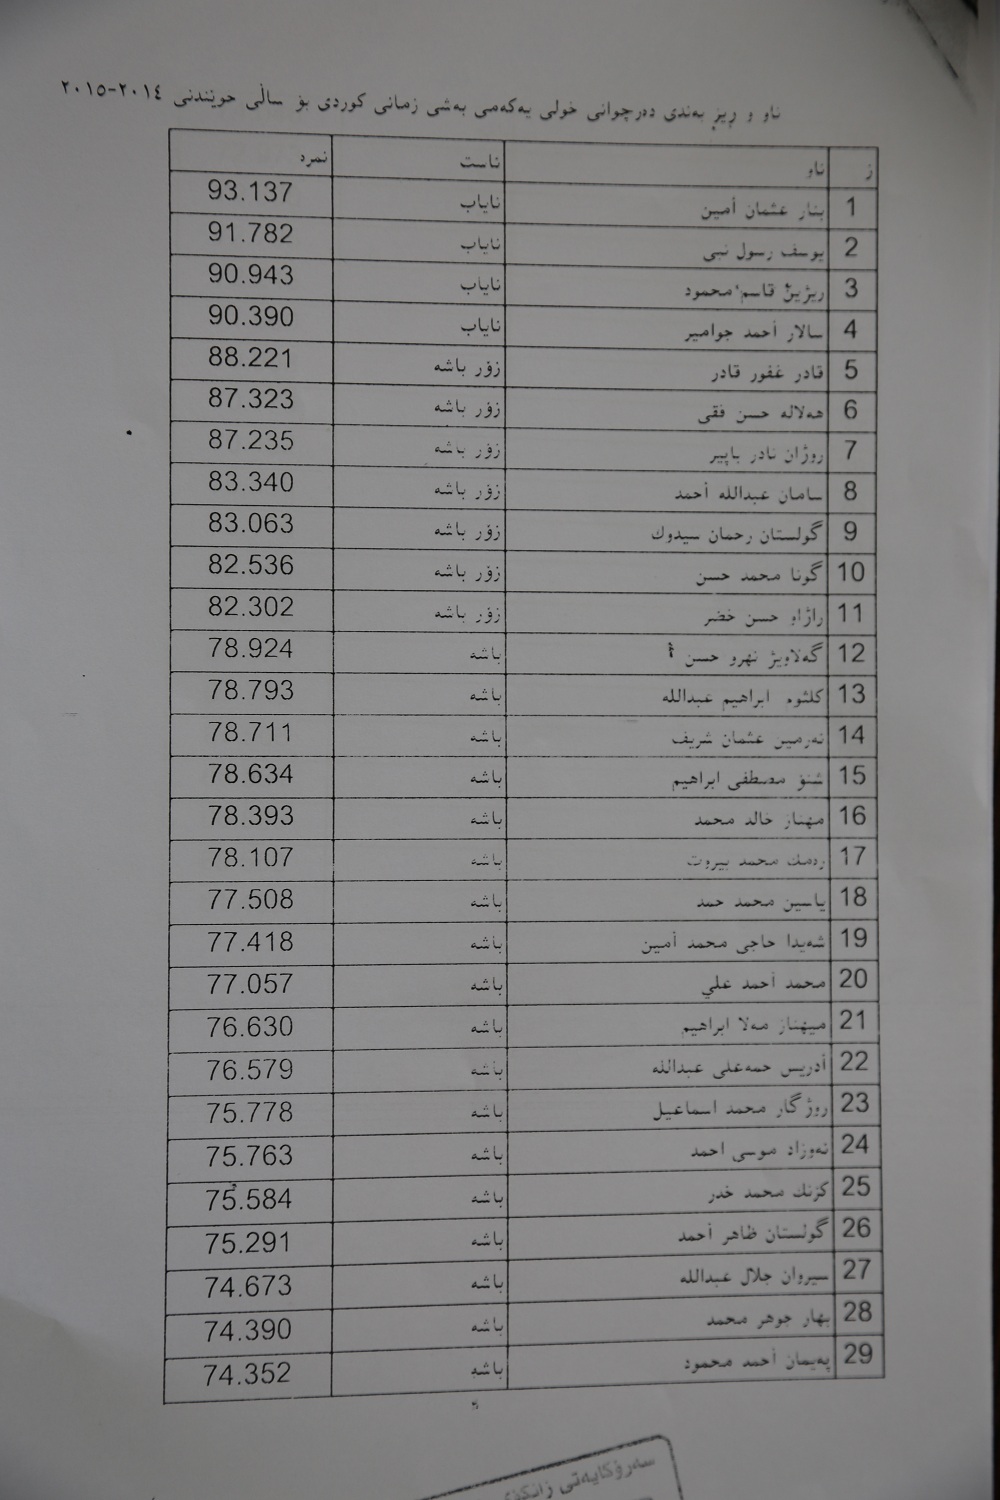 ناو و ریز بەندی دەرچوانی خولی یەکەمی بەشی زمانی کوردی بۆ ساڵی خوێندنی ٢٠١٤-٢٠١٥
ز ناو ئاست نمرە
1 بنار عثمان أمین نایاب 93.137
2 یوسف رسول نبی نایاب 91.782
3 ریژین قاسم محمود نایاب 90.943
4 سالار أحمد جوامیر نایاب 90.390
5 قادر غفور قادر زۆر باشە 88.221
6 هەلالە حسن فقی زۆر باشە 87.323
7 روژان نادر باپیر زۆر باشە 87.235
8 سامان عبدالله أحمد زۆر باشە 83.340
9 گولستان رحمان سیدوك زۆر باشە 83.063
10 گونا محمد حسن زۆر باشە 82.536
11 راژاو حسن خضر زۆر باشە 82.302
12 گەلاویژ نهرو حسن باشە 78.924
13 کلثوم ابراهیم عبدالله باشە 78.793
14 نەرمین عثمان شریف باشە 78.711
15 شنۆ مصطفی ابراهیم باشە 78.634
16 مهناز خالد محمد باشە 78.393
17 محمد بیروت باشە 78.107
18 یاسین محمد حمد باشە 77.508
19 شەیدا حاجی محمد أمین باشە 77.418
20 محمد أحمد علي باشە 77.057
21 میهناز مەلا ابراهیم باشە 76.630
22 أدریس حمەعلی عبدالله باشە 76.579
23 روژگار محمد اسماعیل باشە 75.778
24 نەوزاد موسی احمد باشە 75.763
25 کزنك محمد خدر باشە 75.584
26 گولستان ظاهر أحمد باشە 75.291
27 سیروان جلال عبدالله باشە 74.673
28 بهار جوهر محمد باشە 74.390
29 پەیمان أحمد محمود باشە 74.352
سەرۆکایەتی زانکۆی